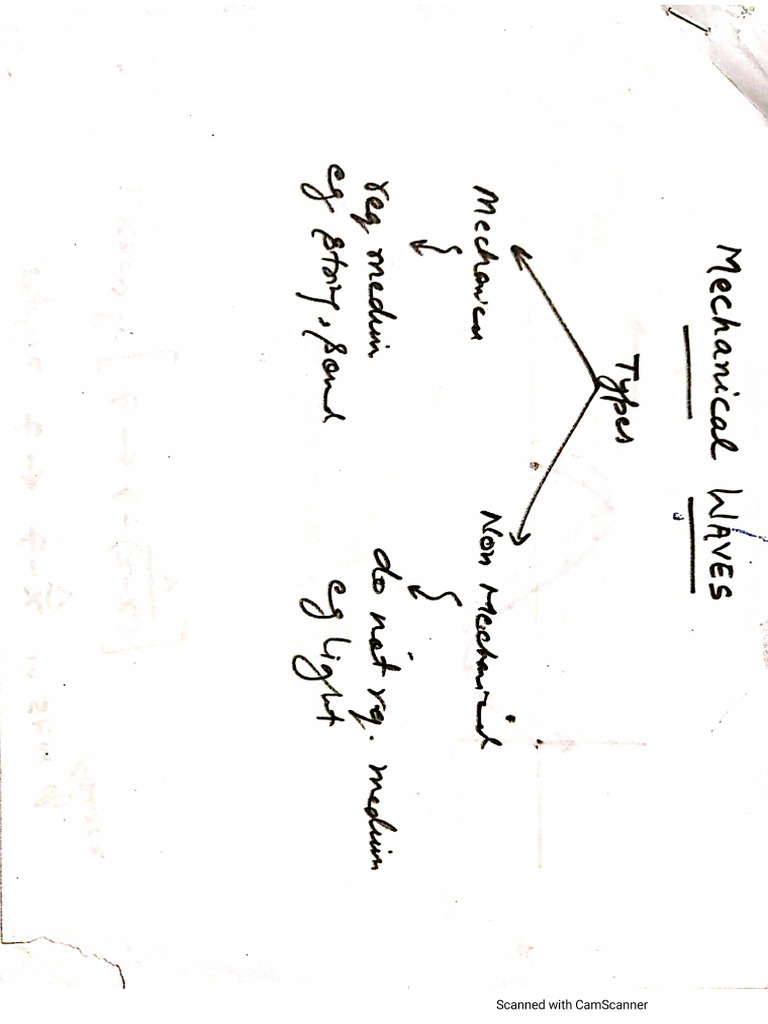 Mechanical WAVES
Types
Mechanical
Non Mechanical
req medium
eg string, sound
do not rq. medium
eg light
Scanned with CamScanner